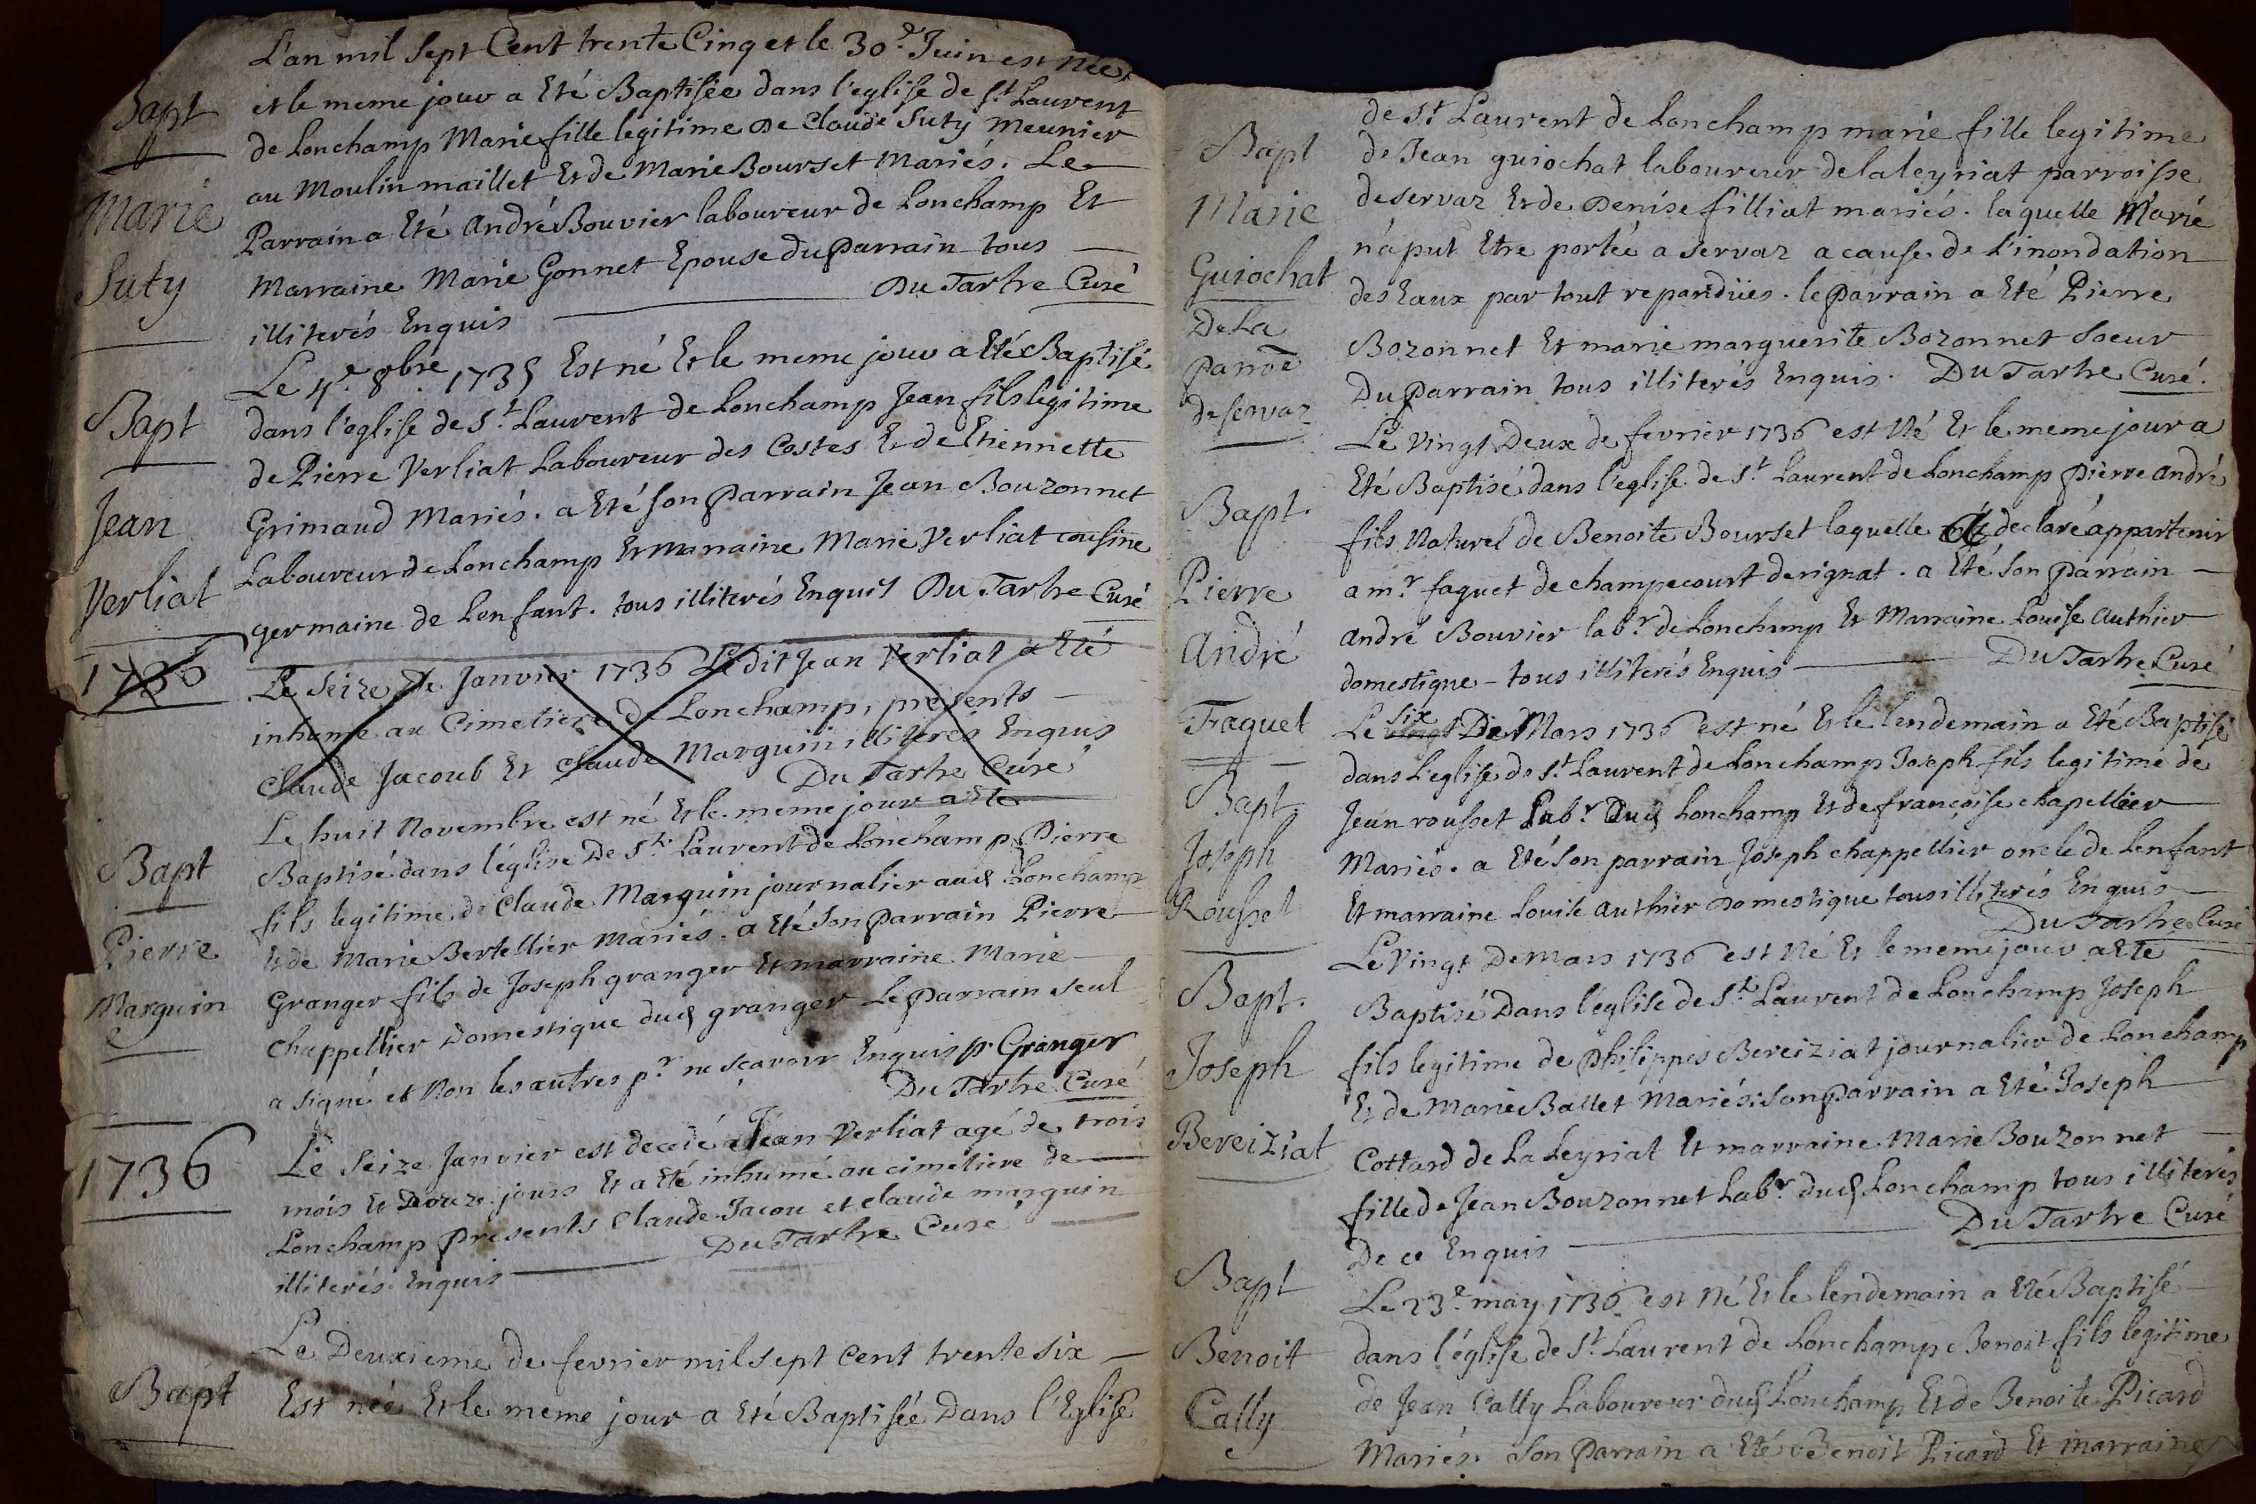 L'an mil sept Cent trente Cinq et le 30.e Juin est Née
Bapt
et le meme jour a Eté Baptisée dans l'eglise de st. Laurent
de Lonchamp Marie fille legitime De Claude Suty Meunier
Marie
au Moulin maillet Et de Marie Bourset Mariés. Le
Parrain a Eté André Bouvier laboureur de Lonchamp Et
Suty
Marraine Marie Gonnet Epouse du parrain tous
illiterés Enquis Du Tartre Curé
Le 4.e 8bre 1735 Est né Et le meme jour a Eté Baptisé
Bapt
dans l'eglise de St. Laurent de Lonchamp Jean fils legitime
de Pierre Verliat Laboureur des Costes Et de Etiennette
Jean
Grimaud Mariés. a Eté son parrain Jean Bouzonnet
Laboureur de Lonchamp Et Marraine Marie Verliat cousine
Verliat
germaine de Lenfant. tous illiterés Enquis Du Tartre Curé
1736
Le Seize De Janvier 1736 Ledit Jean Verliat a Eté
inhumé au Cimetiere de Lonchamp, presents
Claude Jacoub Et Claude Marguin illiterés Enquis
Du Tartre Curé
Le huit Novembre est né Et le meme jour a Eté
Bapt
Baptisé dans l'église De St. Laurent de Lonchamp Pierre
fils legitime de Claude Marguin journalier aud Lonchamp
Pierre
Et de Marie Bertellier Mariés. a Eté son Parrain Pierre
Granger fils de Joseph granger Et marraine Marie
Marguin
Chappellier Domestique dud granger Le parrain seul
a signé et Non les autres pr. ne sçavoir Enquis p. Granger
Du Tartre Curé
1736
Le Seize Janvier est decedé Jean Verliat agé de trois
mois Et Douze jours Et a Eté inhumé au cimetiere de
Lonchamp presents Claude Jacou et claude marguin
illiterés Enquis Du Tartre Curé
Le Deuxieme de fevrier mil sept cent trente six
Bapt
Est née Et le meme jour a Eté Baptisée Dans l'Eglise
de St. Laurent de Lonchamp marie fille legitime
Bapt
de Jean guiochat laboureur de laleyriat parroisse
Marie
de servaz Et de Denise filliat mariés. laquelle Marie
n'a put Etre portée a servaz a cause de l'inondation
Guiochat
des Eaux par tout repandües. le Parrain a Eté Pierre
De La
Bozonnet Et marie marguerite Bozonnet Soeur
parroe
Du Parrain tous illiterés Enquis. Du Tartre Curé.
de servaz
Le vingt Deux de fevrier 1736 est Né Et le meme jour a
Eté Baptisé dans l'eglise de St. Laurent de Lonchamp pierre andré
Bapt.
fils Naturel de Benoite Bourset laquelle a declaré appartenir
a mr. faguet de champecourt derignat. a Eté son parrain
Pierre
andré Bouvier labr. de Lonchamp Et Marraine Louise Authier
André
domestique - tous illiterés Enquis Du Tartre Curé
Faguet
Le vingt six De Mars 1736 est né Et le lendemain a Eté Baptisé
dans l'eglise de St. Laurent de Lonchamp Joseph fils legitime de
Bapt.
Jean rousset Labr. Dud Lonchamp Et de françoise chapellier
Joseph
Mariés. a Eté son parrain Joseph chappellier oncle de Lenfant
Rousset
Et marraine Louise authier Domestique tous illiterés Enquis
Du Tartre Curé
Le Vingt De mars 1736 est Né Et le meme jour a Eté
Bapt.
Baptisé Dans l'eglise de St. Laurent de Lonchamp Joseph
fils legitime de Philippes Bereiziat journalier de Lonchamp
Joseph
Et de Marie Ballet Mariés: son parrain a Eté Joseph
Bereiziat
Cottard de La Leyriat Et marraine Marie Bouzonnet
fille de Jean Bouzonnet Labr. dud Lonchamp tous illiterés
De ce Enquis Du Tartre Curé
Bapt
Le 23.e may 1736 est Né Et le lendemain a Eté Baptisé
Benoit
dans l'église de St. Laurent de Lonchamp Benoit fils legitime
Cally
de Jean Cally Laboureur dud Lonchamp Et de Benoite Picard
Mariés. Son Parrain a Eté Benoit Picard Et marraine